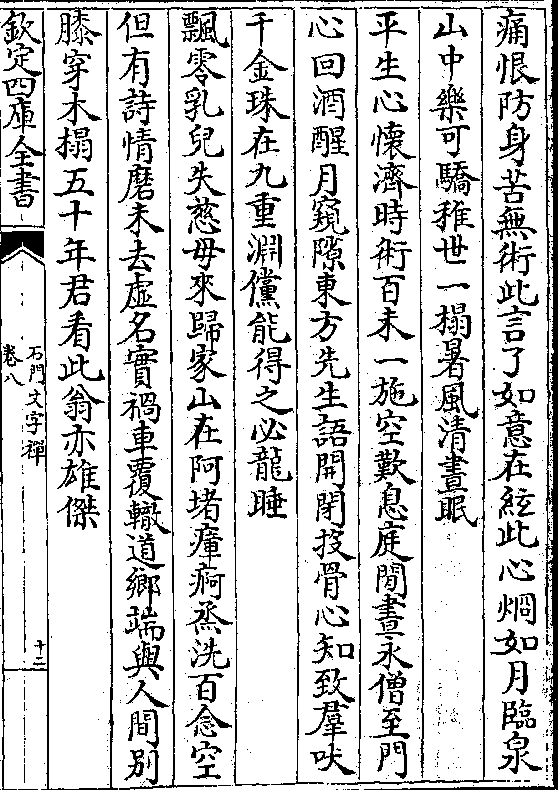 痛恨防身苦無術此言了如意在絃此心烱如月臨泉
山中樂可驕稚世一榻暑風清晝眠
平生心懷濟時術百未一施空歎息庭閒晝永僧至門
心回酒醒月窺隙東方先生語開閉投骨心知致羣吠
千金珠在九重淵儻能得之必龍睡
飄零乳兒失慈母來歸家山在阿堵瘴痾烝洗百念空
但有詩情磨未去虛名實禍車覆轍道鄉端與人間別
膝穿木榻五十年君看此翁亦雄傑
欽定四庫全書
石門文字禪
卷八
十二